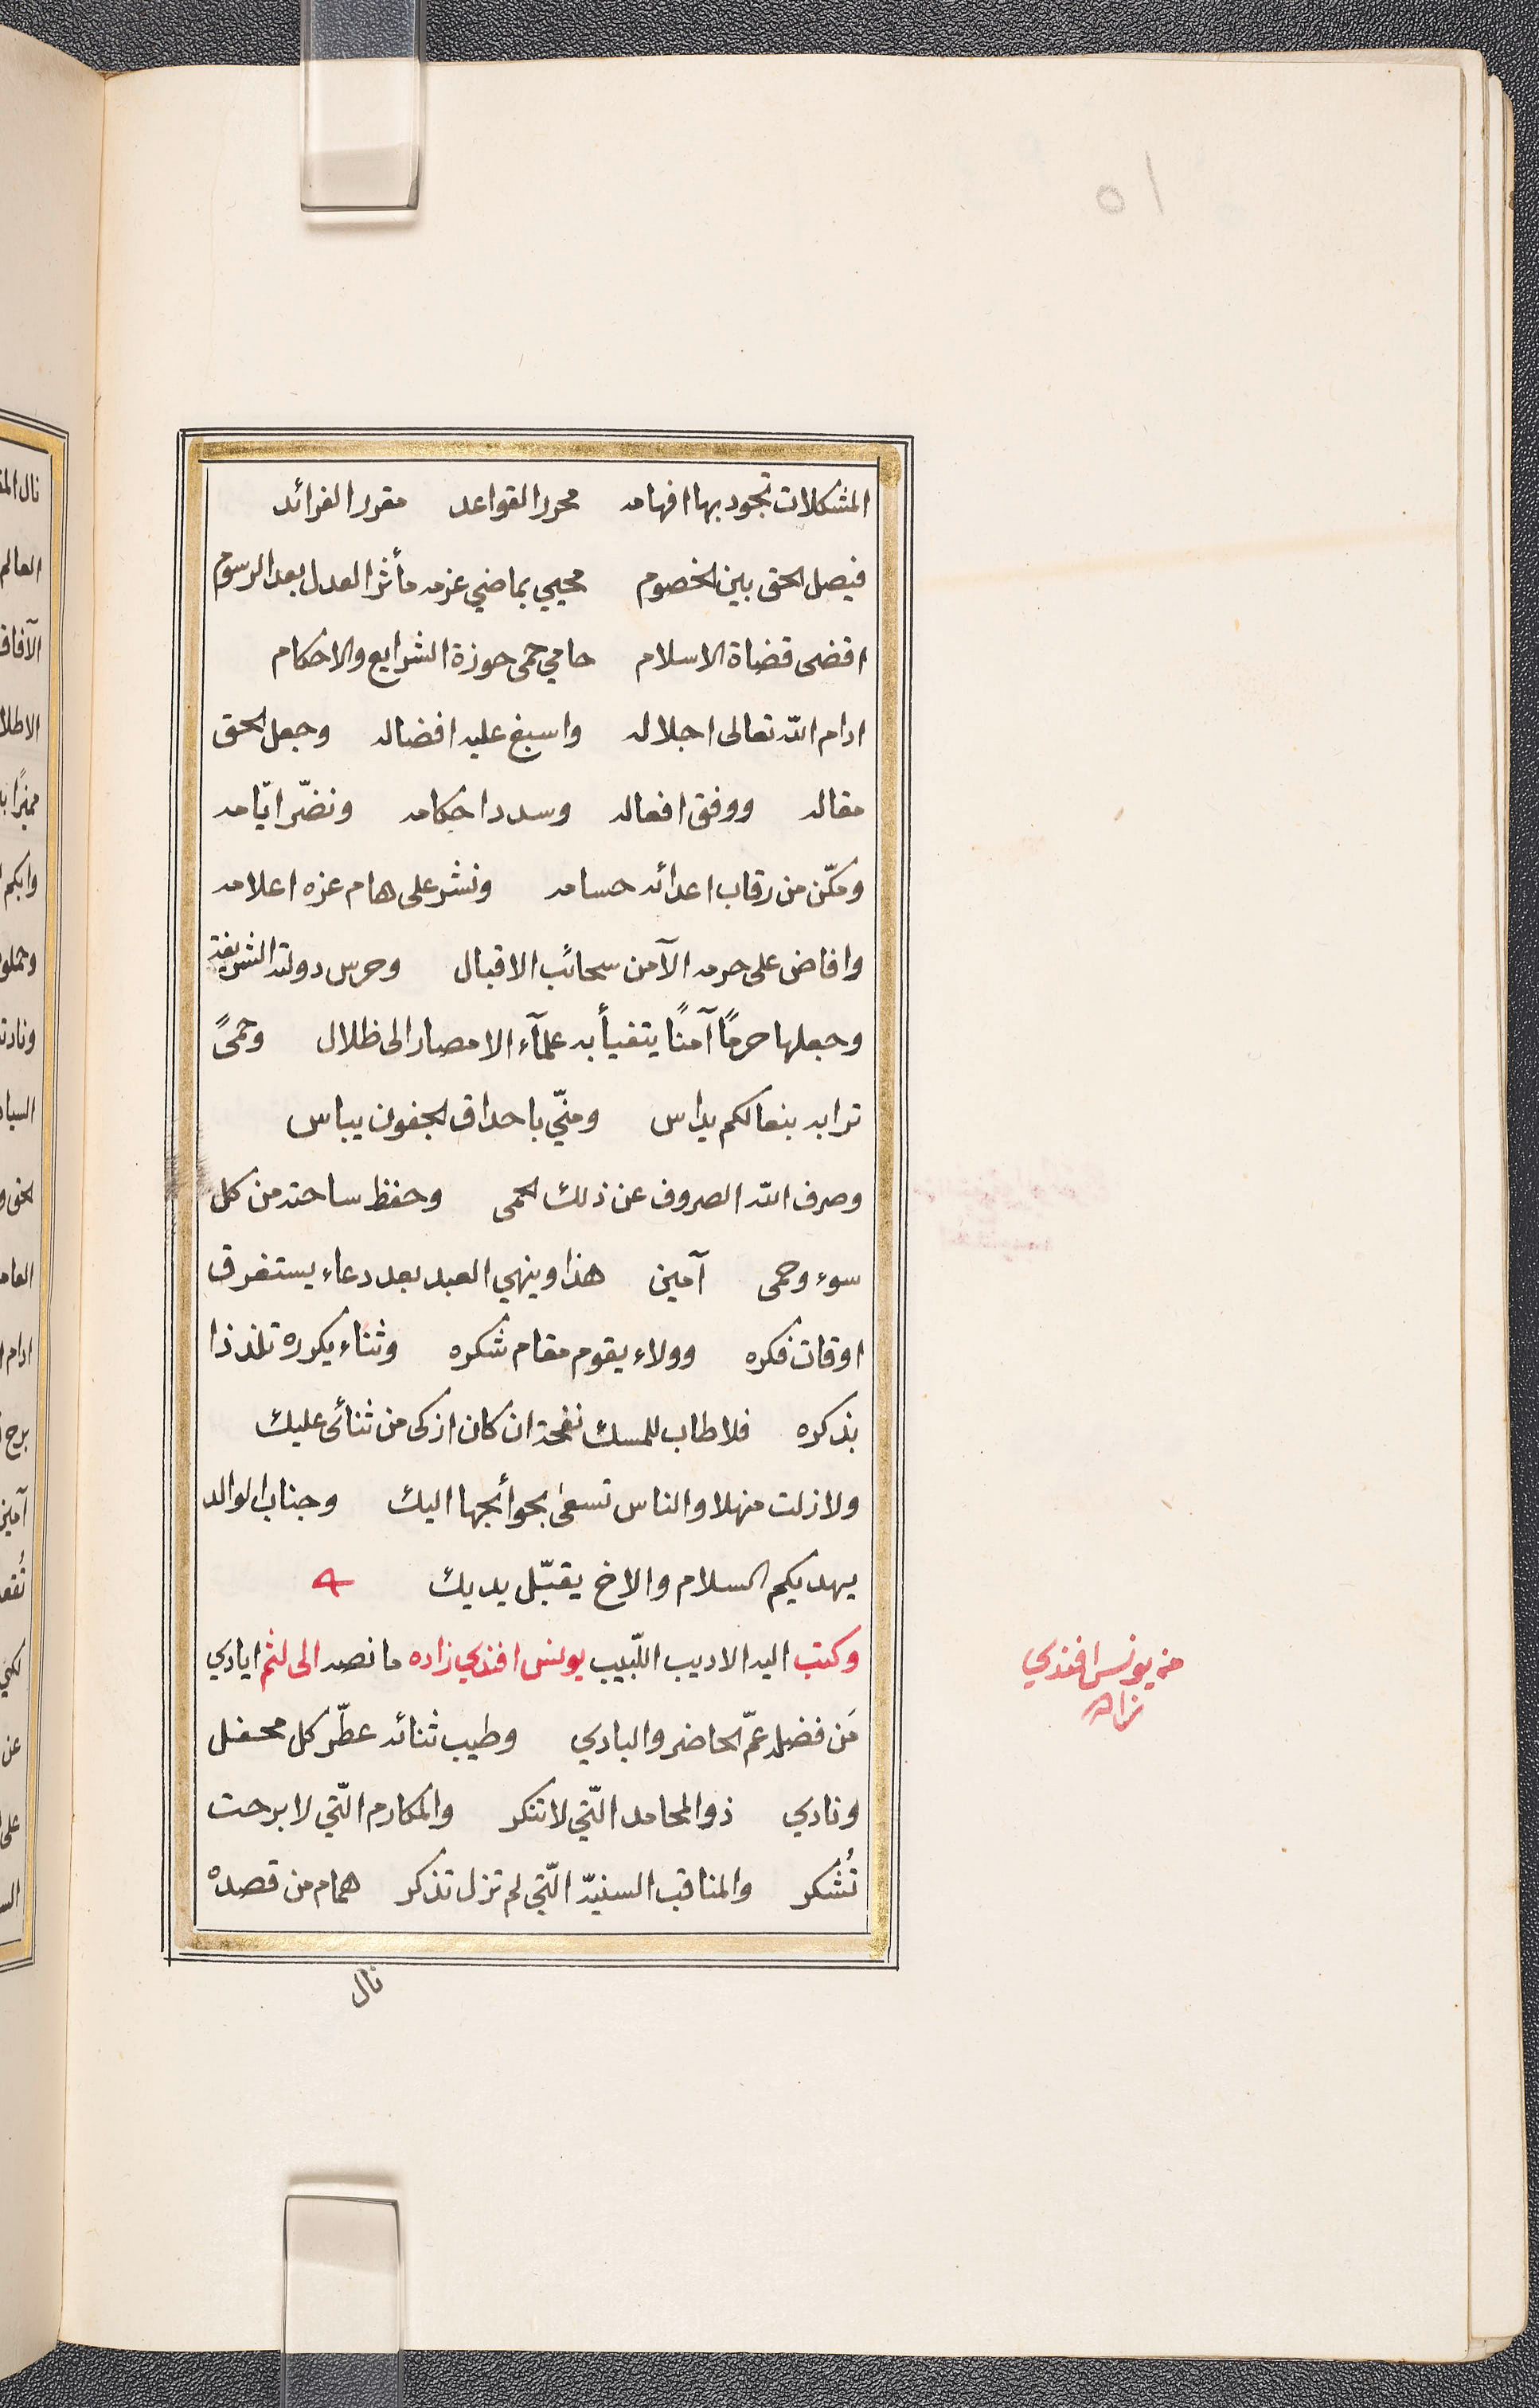 ١٥
المشكلات تجود بها افهامه محرر القواعد مقرر الفرائد
فيصل الحق بين الخصوم محيي بماضي عزمه مأثر العدل بعد الرسوم
اقضى قضاة الاسلام حامي حمى حوزة الشرايع والاحكام
ادام الله تعالى اجلاله واسبغ عليه افضاله وجعل الحق
مقاله ووفق افعاله وسدد احكامه ونضّر ايّامه
ومكّن من رقاب اعدائه حسامه ونشر على هام عزه اعلامه
وافاض على حرمه الآمن سحائب الاقبال وحرس دولته الشريفة
وجعلها حرمًا آمنًا يتفيأ به علمآء الامصار الى ظلال وحمىً
ترابه بنعالكم يداس ومنّي باحداق الجفون يباس
وصرف الله الصروف عن ذلك الحمى وحفظ ساحته من كل
سوء وحمى آمين هذا وينهي العبد بعد دعاء يستغرق
اوقات فكره وولاء يقوم مقام شكره وثناء يكرره تلذذا
بذكره فلا طاب للمسك نفحة ان كان ازكى من ثنائى عليك
ولا زلت منهلا والناس تسعى بحوأئجها اليك وجناب الوالد
يهديكم السلام والاخ يقبّل يديك
وكتب اليه الاديب اللّبيب يونس افندي زاده ما نصه الى لثم ايادي
مَن فضله عمّ الحاضر والبادي وطيب ثنائه عطّر كل محفل
ونادي ذو المحامد الّتي لا تنكر والمكارم الّتي لا برحت
تُشكر والمناقب السنيّة الّتي لم تزل تذكر همام من قصده
نال
من يونس افندي
زاده